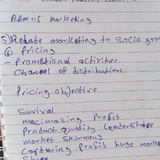 BBM 115 Marketing
5) Relate marketing to socio
① Pricing
- Promotional activities
Channel of distribution
Pricing objective
Survival
maximasing Profit
Product quality leadership
market skimming
Capturing profit huge market